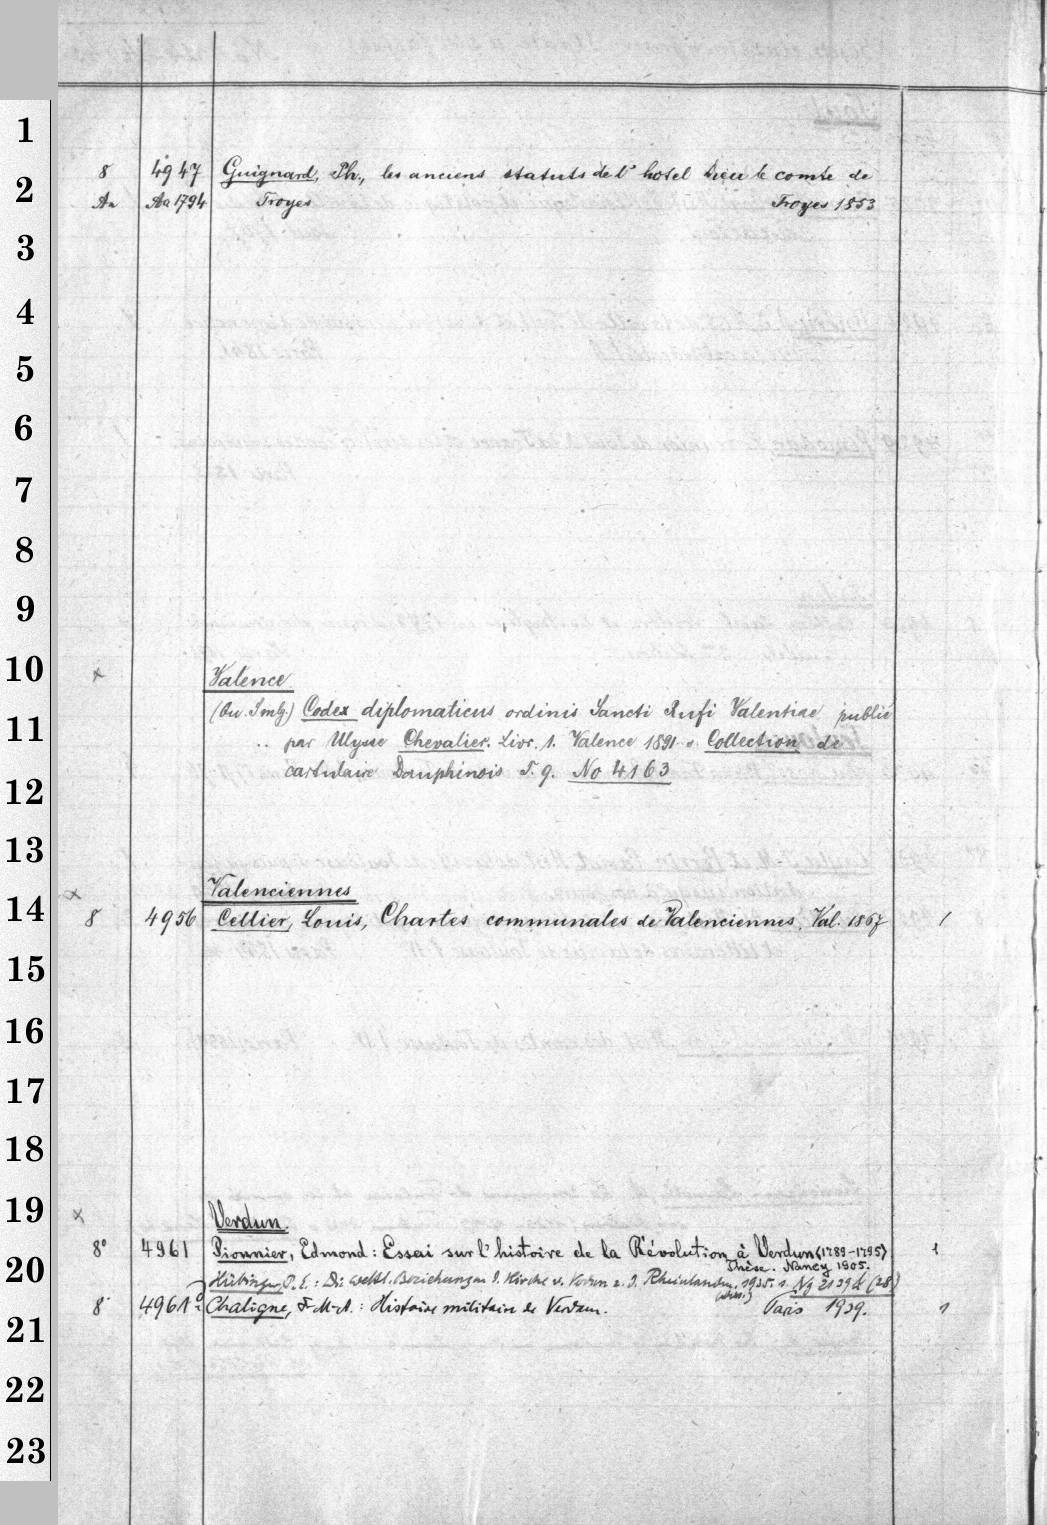 8 4947 Guignard, Ph., les anciens statuts de l'hotel Dieu le comte de
An Aa 1794 Troyes Troyes 1853
x Valence
(Ou. Smlg.) Codex diplomaticus ordinis Sancti Rufi Valentiae publié
par Ulysse Chevalier. Livr. 1. Valence 1891. s. Collection de
cartulaire Dauphinois T. 9. No 4163
x Valenciennes
8 4956 Cellier, Louis, Chartes communales de Valenciennes. Val. 1867 1
x Verdun.
8° 4961 Pionnier, Edmond: Essai sur l'histoire de la Révolution à Verdun (1789-1795) 1
Thèse. Nancy 1905.
Hübinger, P. E.: Die weltl. Beziehungen d. Kirche v. Verdun z. d. Rheinlanden. 1935. s. Ng 2139d (28)
(Diss.)
8° 4961a Chaligne, F.-M.-A.: Histoire militaire de Verdun. Paris 1939. 1
1
2
3
4
5
6
7
8
9
10
11
12
13
14
15
16
17
18
19
20
21
22
23